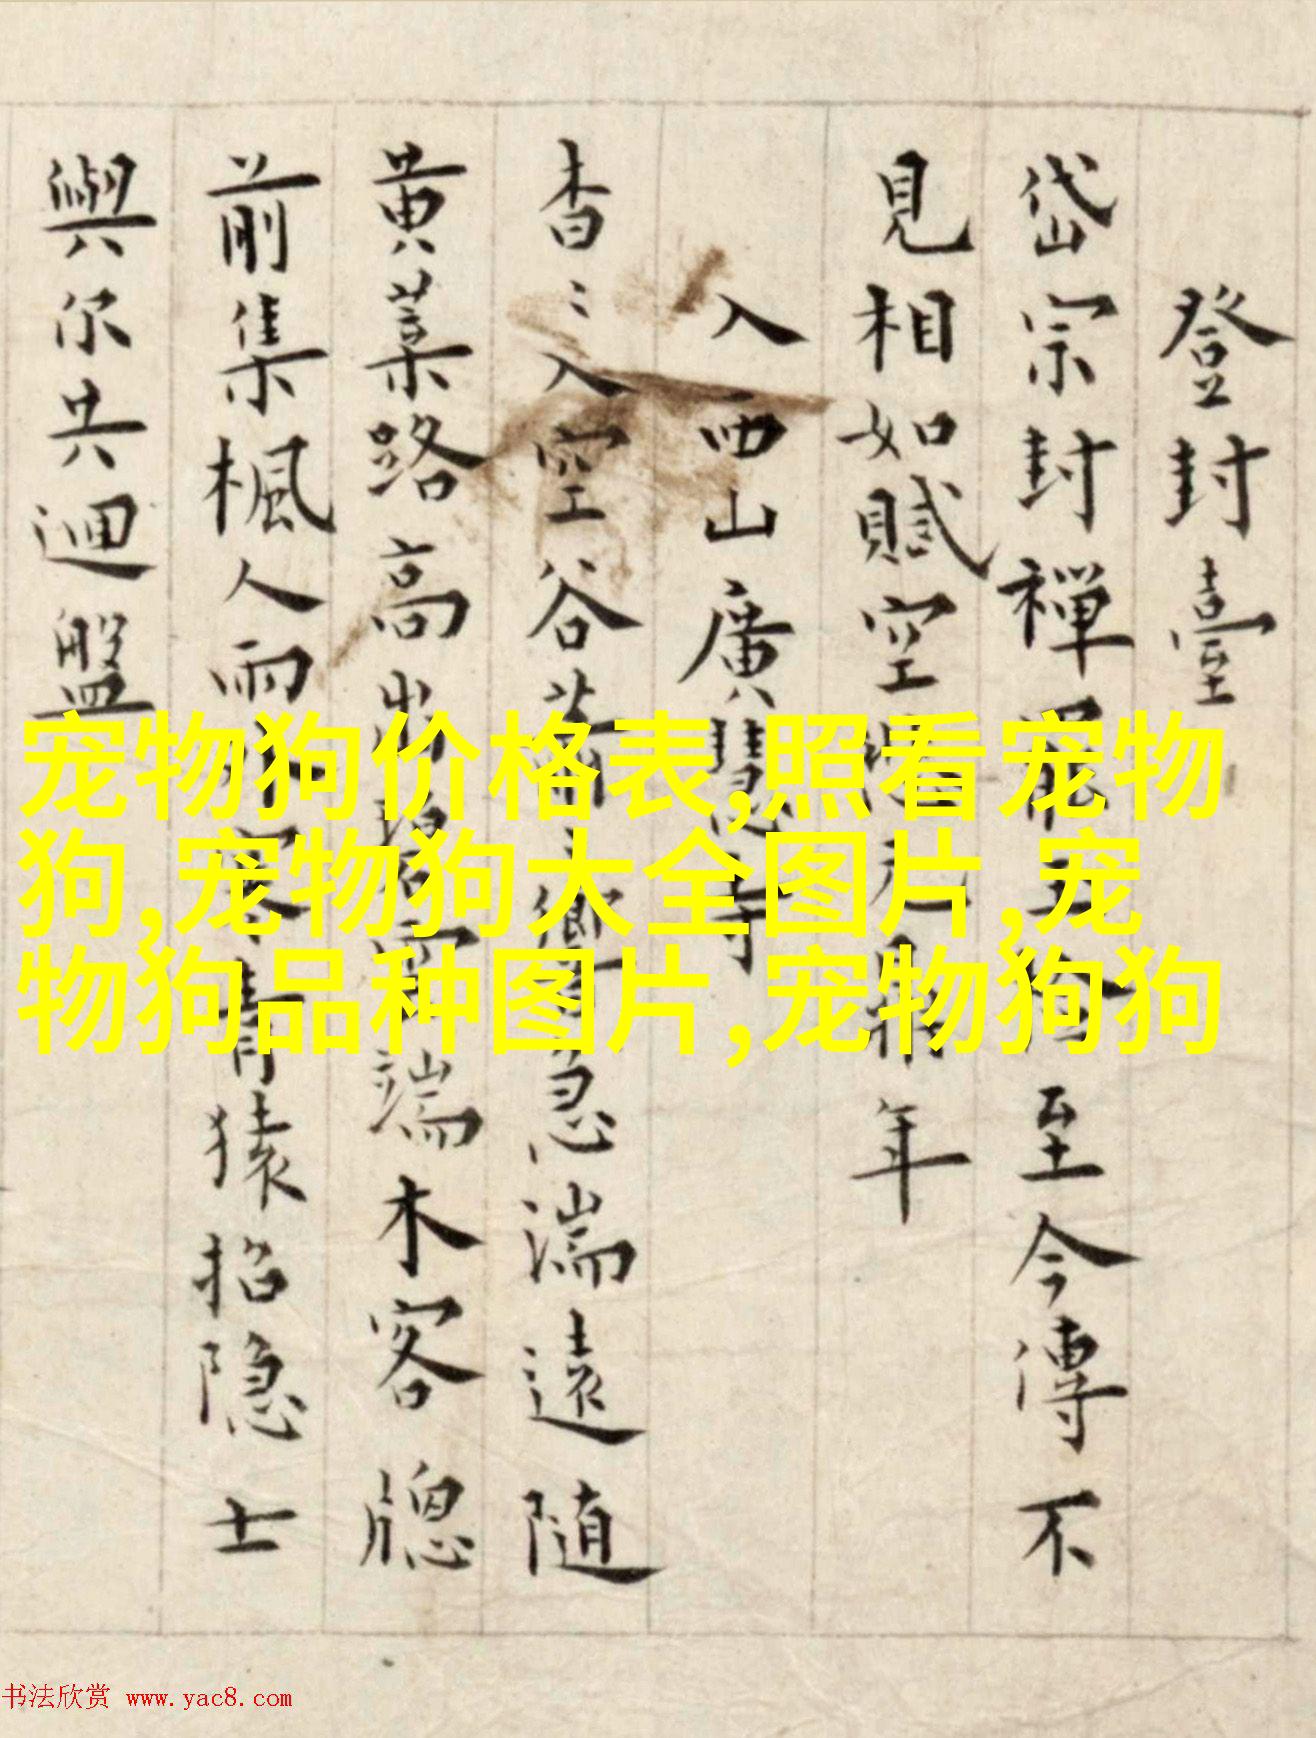 登封臺
岱宗封禪罷至今傳不
見相如賦空年
入西山廣慧寺
杳〻入空谷蕭急湍遠隨
黄葉路高出碧雲端木客牕
前集楓人雨寒青猿招隐士
與尔共迴盤
宠物狗价格表,照看宠物
狗,宠物狗大全图片,宠
物狗品种图片,宠物狗狗
书法欣赏 www.yac8.com